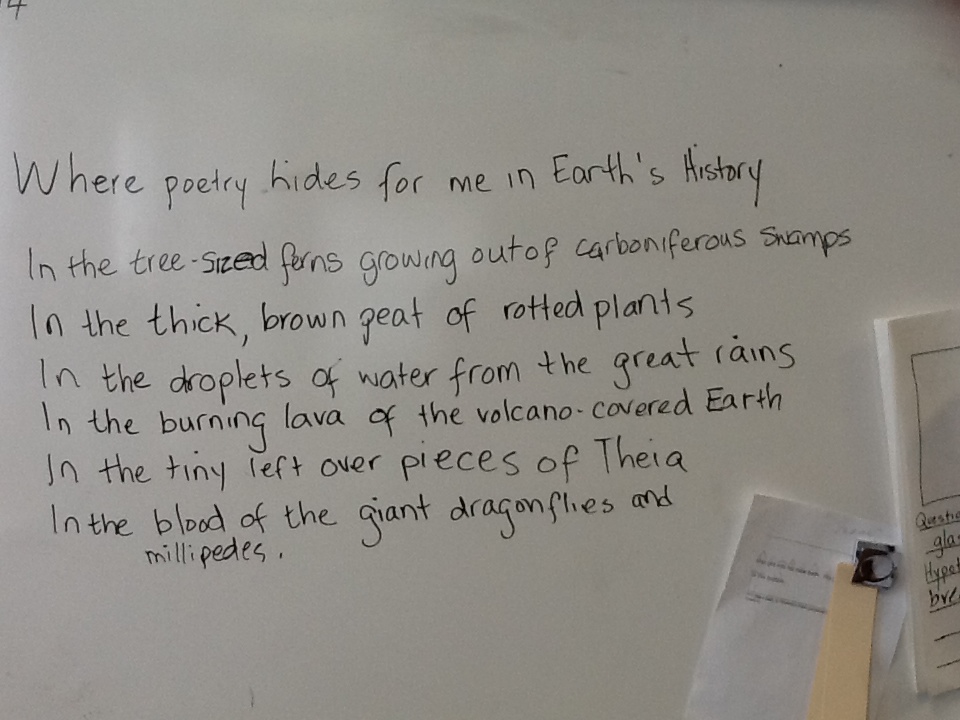 14
Where poetry hides for me in Earth's History
In the tree-sized ferns growing out of carboniferous swamps
In the thick, brown peat of rotted plants
In the droplets of water from the great rains
In the burning lava of the volcano-covered Earth
In the tiny left over pieces of Theia
In the blood of the giant dragonflies and
millipedes.